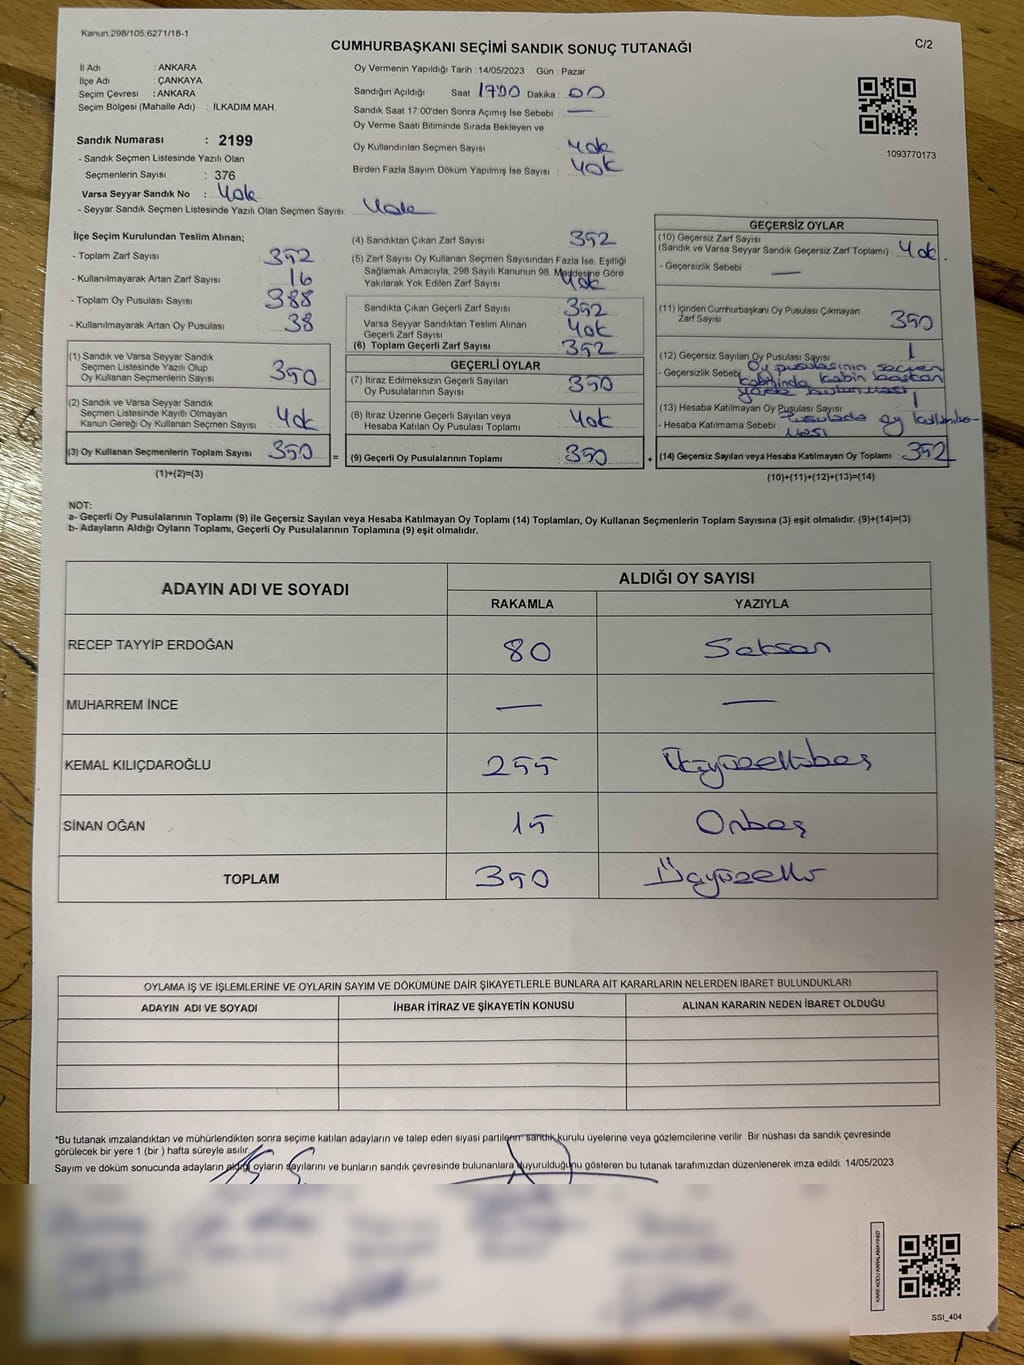 Kanun:298/105,6271/18-1
C/2
CUMHURBAŞKANI SEÇİMİ SANDIK SONUÇ TUTANAĞI
İl Adı : ANKARA
İlçe Adı : ÇANKAYA
Seçim Çevresi : ANKARA
Seçim Bölgesi (Mahalle Adı) : İLKADIM MAH.
Sandık Numarası : 2199
- Sandık Seçmen Listesinde Yazılı Olan
Seçmenlerin Sayısı : 376
Varsa Seyyar Sandık No : Yok
- Seyyar Sandık Seçmen Listesinde Yazılı Olan Seçmen Sayısı: Yok
Oy Vermenin Yapıldığı Tarih : 14/05/2023 Gün : Pazar
Sandığın Açıldığı Saat 17:00 Dakika : 00
Sandık Saat 17:00'den Sonra Açımış İse Sebebi : —
Oy Verme Saati Bitiminde Sırada Bekleyen ve
Oy Kullandırılan Seçmen Sayısı : Yok
Birden Fazla Sayım Döküm Yapılmış İse Sayısı : Yok
1093770173
İlçe Seçim Kurulundan Teslim Alınan;
- Toplam Zarf Sayısı : 352
- Kullanılmayarak Artan Zarf Sayısı : 16
- Toplam Oy Pusulası Sayısı : 388
- Kullanılmayarak Artan Oy Pusulası : 38
(1) Sandık ve Varsa Seyyar Sandık
Seçmen Listesinde Yazılı Olup
Oy Kullanan Seçmenlerin Sayısı : 350
(2) Sandık ve Varsa Seyyar Sandık
Seçmen Listesinde Kayıtlı Olmayan
Kanun Gereği Oy Kullanan Seçmen Sayısı : Yok
(3) Oy Kullanan Seçmenlerin Toplam Sayısı : 350
(1)+(2)=(3)
(4) Sandıktan Çıkan Zarf Sayısı : 352
(5) Zarf Sayısı Oy Kullanan Seçmen Sayısından Fazla İse, Eşitliği
Sağlamak Amacıyla, 298 Sayılı Kanunun 98. Maddesine Göre
Yakılarak Yok Edilen Zarf Sayısı : Yok
Sandıkta Çıkan Geçerli Zarf Sayısı : 352
Varsa Seyyar Sandıktan Teslim Alınan
Geçerli Zarf Sayısı : Yok
(6) Toplam Geçerli Zarf Sayısı : 352
GEÇERLİ OYLAR
(7) İtiraz Edilmeksizin Geçerli Sayılan
Oy Pusulalarının Sayısı : 350
(8) İtiraz Üzerine Geçerli Sayılan veya
Hesaba Katılan Oy Pusulası Toplamı : Yok
= (9) Geçerli Oy Pusulalarının Toplamı : 350 +
GEÇERSİZ OYLAR
(10) Geçersiz Zarf Sayısı
(Sandık ve Varsa Seyyar Sandık Geçersiz Zarf Toplamı) : Yok.
- Geçersizlik Sebebi : —
(11) İçinden Cumhurbaşkanı Oy Pusulası Çıkmayan
Zarf Sayısı : 350
(12) Geçersiz Sayılan Oy Pusulası Sayısı : 1
- Geçersizlik Sebebi : Oy pusulasının seçmen
kabininde kabin
yerde bulunması
(13) Hesaba Katılmayan Oy Pusulası Sayısı : 1
- Hesaba Katılmama Sebebi : Pusulada oy kullanılma-
ması
(14) Geçersiz Sayılan veya Hesaba Katılmayan Oy Toplamı : 352
(10)+(11)+(12)+(13)=(14)
NOT:
a- Geçerli Oy Pusulalarının Toplamı (9) ile Geçersiz Sayılan veya Hesaba Katılmayan Oy Toplamı (14) Toplamları, Oy Kullanan Seçmenlerin Toplam Sayısına (3) eşit olmalıdır. (9)+(14)=(3)
b- Adayların Aldığı Oyların Toplamı, Geçerli Oy Pusulalarının Toplamına (9) eşit olmalıdır.
ADAYIN ADI VE SOYADI ALDIĞI OY SAYISI
RAKAMLA YAZIYLA
RECEP TAYYİP ERDOĞAN 80 Seksen
MUHARREM İNCE — —
KEMAL KILIÇDAROĞLU 255 İkiyüzellibeş
SİNAN OĞAN 15 Onbeş
TOPLAM 350 Üçyüzelli
OYLAMA İŞ VE İŞLEMLERİNE VE OYLARIN SAYIM VE DÖKÜMÜNE DAİR ŞİKAYETLERLE BUNLARA AİT KARARLARIN NELERDEN İBARET BULUNDUKLARI
ADAYIN ADI VE SOYADI İHBAR İTİRAZ VE ŞİKAYETİN KONUSU ALINAN KARARIN NEDEN İBARET OLDUĞU
*Bu tutanak imzalandıktan ve mühürlendikten sonra seçime katılan adayların ve talep eden siyasi partilerin sandık kurulu üyelerine veya gözlemcilerine verilir. Bir nüshası da sandık çevresinde
görülecek bir yere 1 (bir ) hafta süreyle asılır.
Sayım ve döküm sonucunda adayların aldığı oyların sayılarını ve bunların sandık çevresinde bulunanlara duyurulduğunu gösteren bu tutanak tarafımızdan düzenlenerek imza edildi. 14/05/2023
KARE KODU KARALAMAYINIZ!
SSI_404